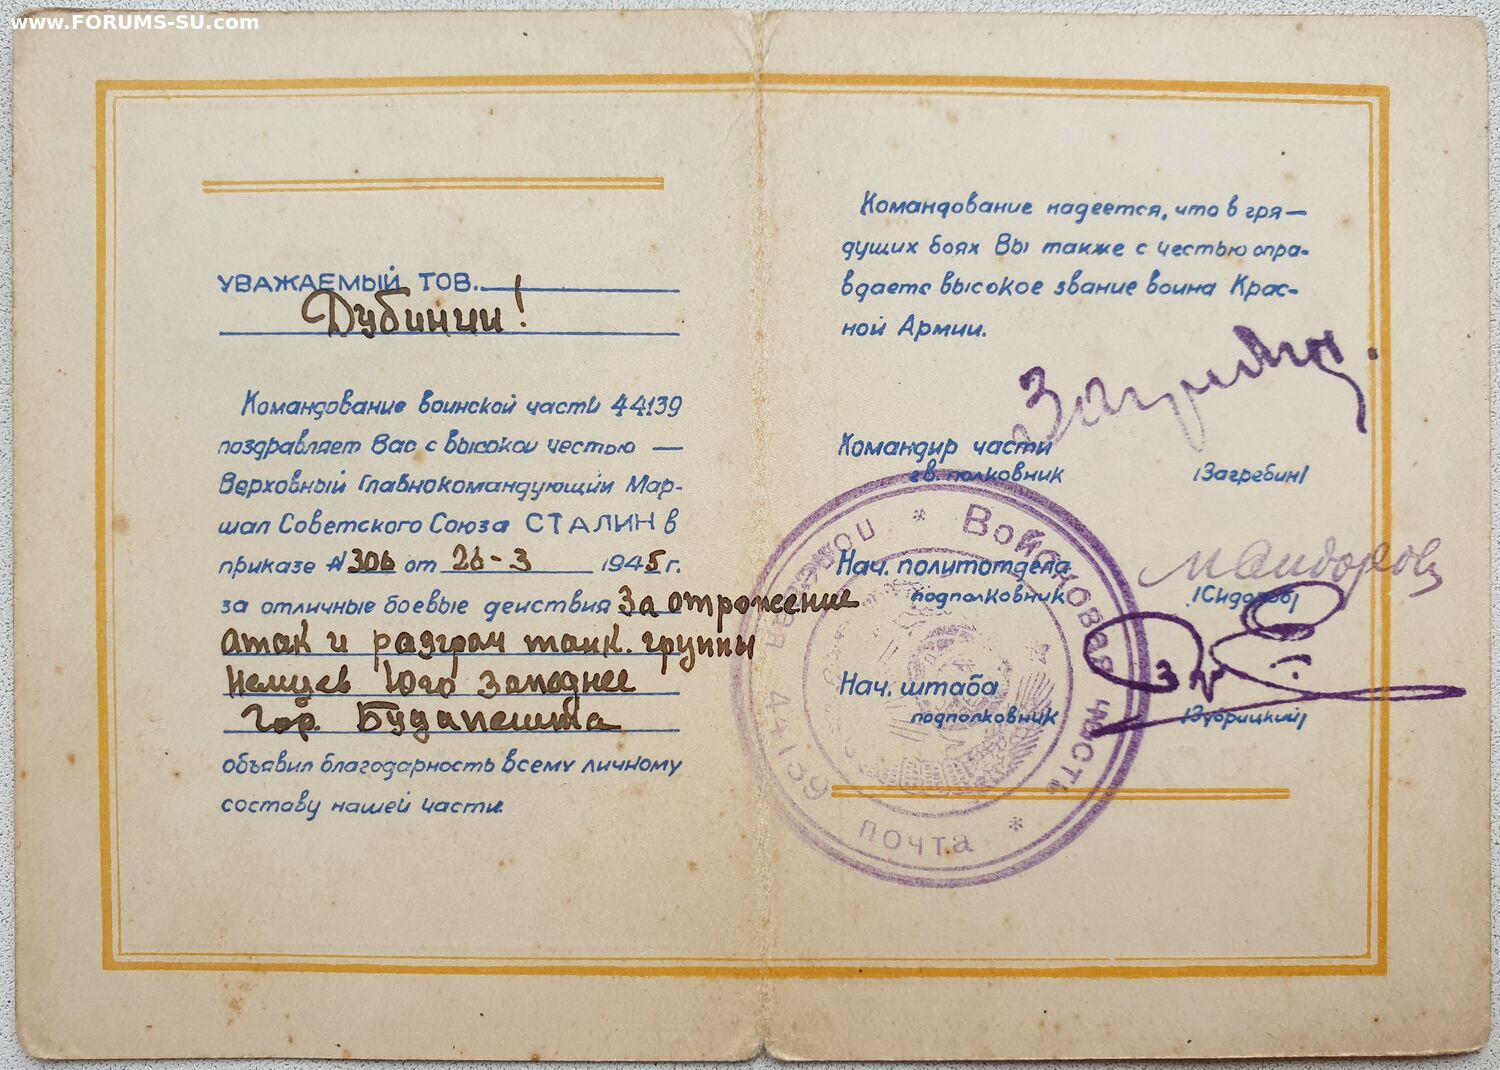 www.FORUMS-SU.com
УВАЖАЕМЫЙ ТОВ.
Дубинин!
Командование воинской части 44139
поздравляет Вас с высокой честью —
Верховный Главнокомандующий Мар-
шал Советского Союза СТАЛИН в
приказе №306 от 26-3 1945г.
за отличные боевые действия За отрожение
атак и разгром танк. группы
Немцев Юго Западнее
Гор. Будапешта
объявил благодарность всему личному
составу нашей части.
Командование надеется, что в гря—
дущих боях Вы также с честью опра-
вдаете высокое звание воина Крас-
ной Армии.
Загребин.
Командир части
гв. полковник /Загребин/
Нач. политотдела
подполковник /Сидоров/
МСидоров
Нач. штаба
подполковник /Зубрицкий/
* Войсковая часть * почта 44139 полевая